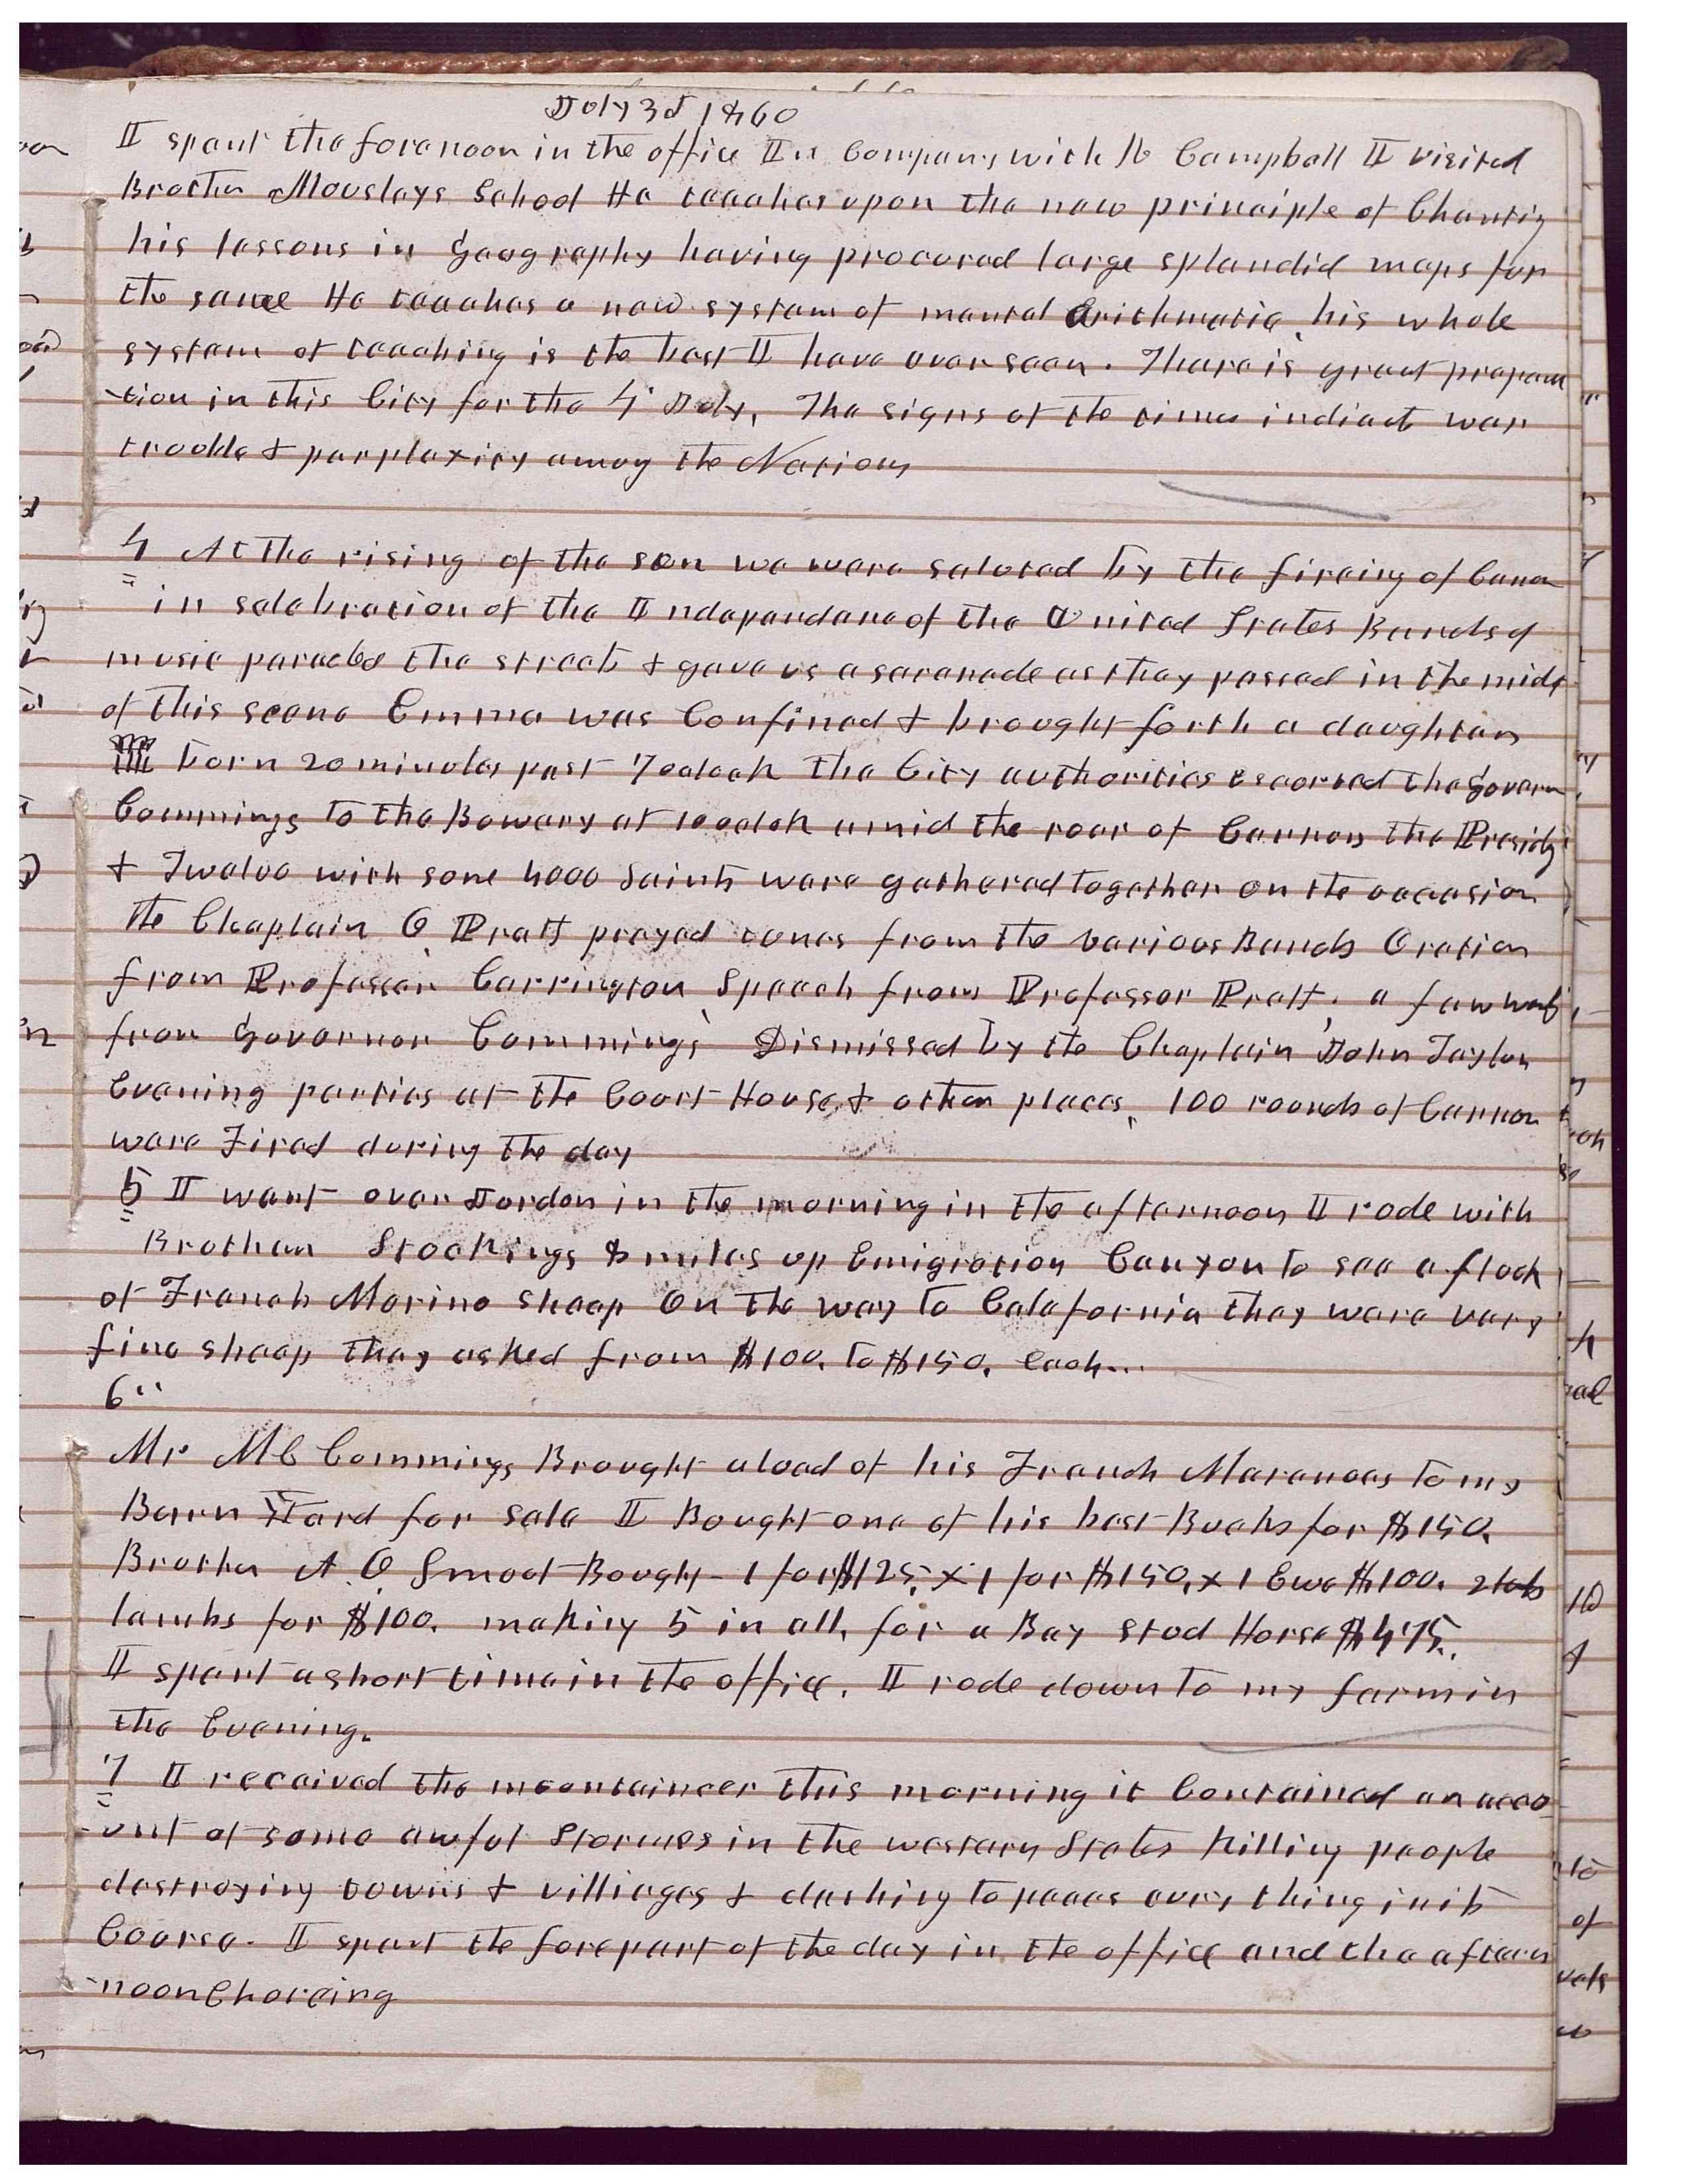 July 3d 1860
I spent the forenoon in the office In Company with R Campbell I visited
Brother Mousleys School He teaches upon the new principle of Chanting
his lessons in Geography having procured large splendid maps for
the same He teaches a new system of mental Arithmetic, his whole
system of teaching is the best I have ever seen. There is great prepara
-tion in this City for the 4th July. The signs of the times indicate war
trouble & perplexity among the Nations
4 At the rising of the sun we were saluted by the fireing of Canon
in selebration of the Independance of the United States Bands of
music paraded the streets & gave us a saranade as they passed in the midst
of this scene Emma was Confined & brought forth a daughter
born 20 minutes past 7 oclock the City authorities escorted the Govern
Cummings to the Bowery at 10 oclok amid the roar of Cannon the Presidy
& Twelve with some 4000 Saints were gathered together on the occasion
the Chaplain O Pratt prayed tunes from the various Bands Oration
from Professor Carrington Speech from Professor Pratt, a few words
from Governor Cummings Dismissed by the Chaplain John Taylor
Evening parties at the Court House, & other places, 100 rounds of Cannon
were Fired during the day
5 I went over Jordon in the morning in the afternoon I rode with
Brother Stockings 8 miles up Emigration Canyon to see a flock
of French Merino sheep On the way to Calafornia they were very
fine sheep they asked from $100. to $150. each...
6"
Mr M C Cummings Brought a load of his French Maranoes to my
Barn Yard for sale I Bought one of his best Bucks for $150.
Brother A. O Smoot Bought - 1 for $125, X 1 for $150, x 1 Ewe $100. 2
lambs for $100. making 5 in all, for a Bay Stud Horse $475.
I spent a short time in the office. I rode down to my farm in
the Evening.
7 I received the mountaineer this morning it Contained an acco
-unt of some awful Stormes in the western States killing people
destroying towns & villieges & dashing to peaces every thing in its
Course. I spent the forepart of the day in the office and the aftern
-noon Choreing